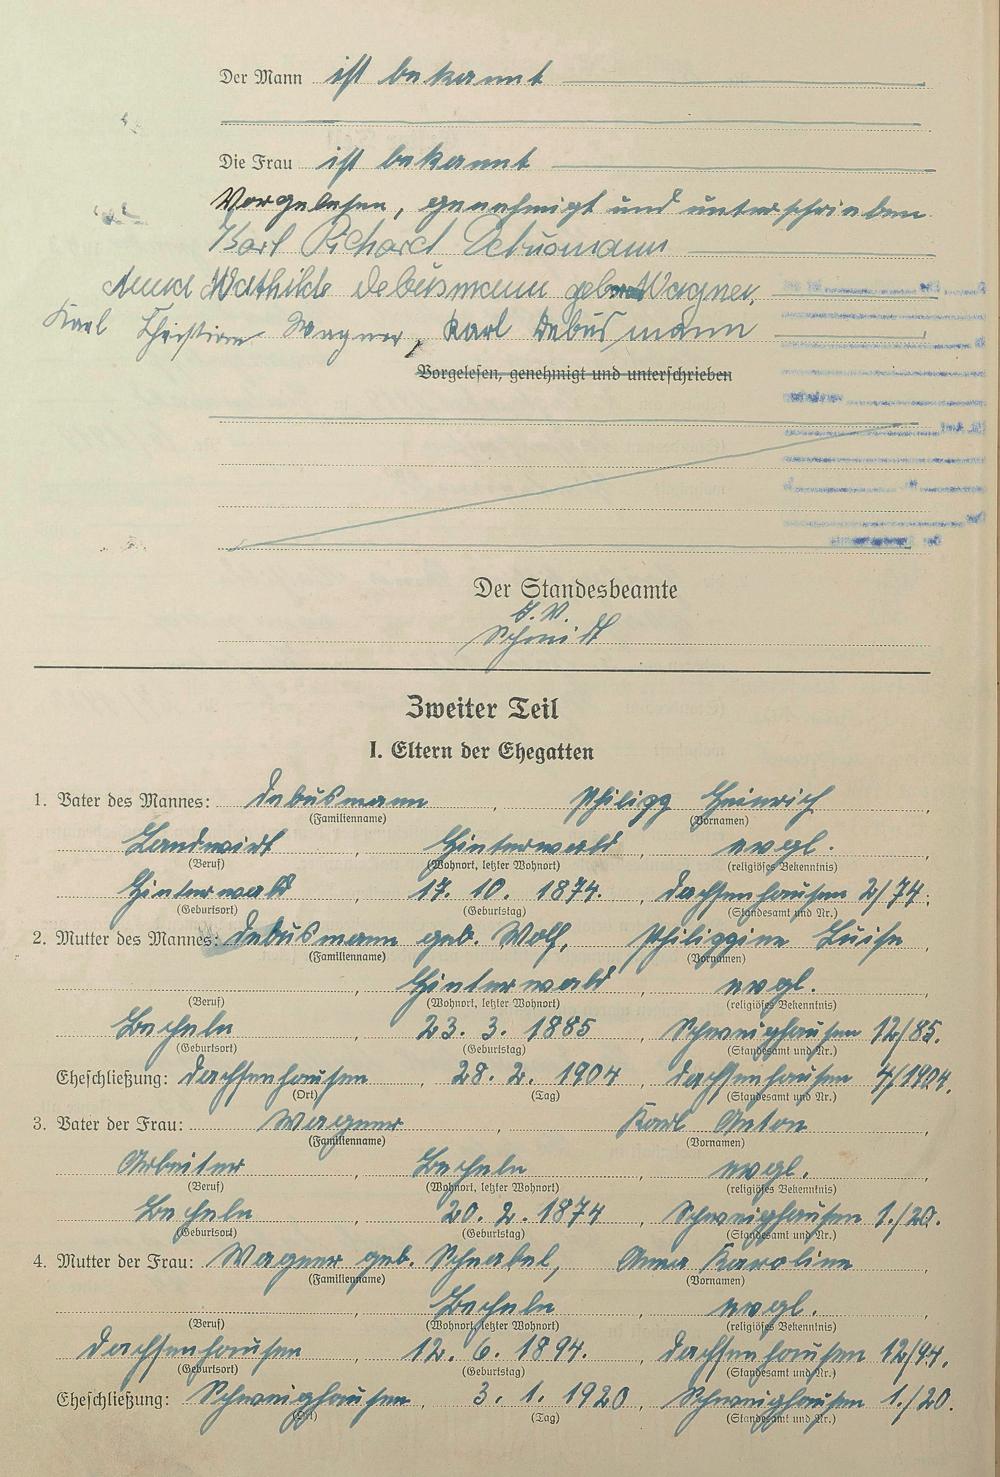 Der Mann ist bekannt
Die Frau ist bekannt
Vorgelesen, genehmigt und unterschrieben
Karl Richard Debusmann
Anna Mathilde Debusmann geb. Wagner,
Karl Christian Wagner, Karl Debusmann
Vorgelesen, genehmigt und unterschrieben
Der Standesbeamte
J. V.
Schmidt
Zweiter Teil
I. Eltern der Ehegatten
1. Vater des Mannes: Debusmann, Philipp Heinrich,
(Familienname) (Vornamen)
Landwirt, Hinterwald, evgl.,
(Beruf) (Wohnort, letzter Wohnort) (religiöses Bekenntnis)
Hinterwald, 17. 10. 1874., Dachsenhausen 2/74.
(Geburtsort) (Geburtstag) (Standesamt und Nr.)
2. Mutter des Mannes: Debusmann geb. Wolf, Philippine Luise,
(Familienname) (Vornamen)
, Hinterwald, evgl.,
(Beruf) (Wohnort, letzter Wohnort) (religiöses Bekenntnis)
Becheln, 23. 3. 1885, Schweighausen 12/85.
(Geburtsort) (Geburtstag) (Standesamt und Nr.)
Eheschließung: Dachsenhausen, 28. 2. 1904, Dachsenhausen 4/1904.
(Ort) (Tag) (Standesamt und Nr.)
3. Vater der Frau: Wagner, Karl Anton,
(Familienname) (Vornamen)
Arbeiter, Becheln, evgl.,
(Beruf) (Wohnort, letzter Wohnort) (religiöses Bekenntnis)
Becheln, 20. 2. 1874, Schweighausen 1./20.
(Geburtsort) (Geburtstag) (Standesamt und Nr.)
4. Mutter der Frau: Wagner geb. Schnabel, Anna Karoline,
(Familienname) (Vornamen)
, Becheln, evgl.,
(Beruf) (Wohnort, letzter Wohnort) (religiöses Bekenntnis)
Dachsenhausen, 12. 6. 1894., Dachsenhausen 12/94.
(Geburtsort) (Geburtstag) (Standesamt und Nr.)
Eheschließung: Schweighausen, 3. 1. 1920, Schweighausen 1./20.
(Ort) (Tag) (Standesamt und Nr.)